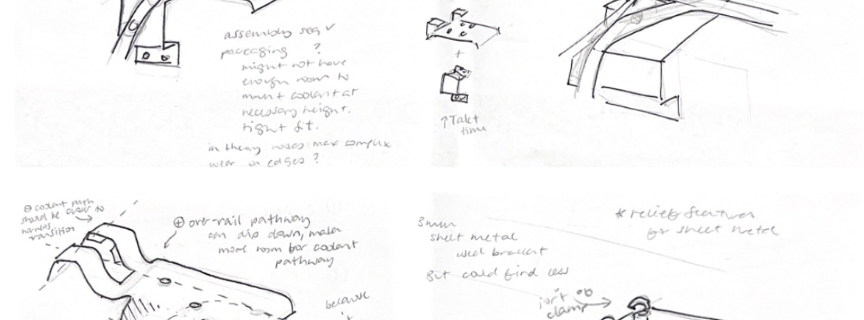 assembly seq ✓
packaging ?
might not have
enough room to
mount coolant at
necessary height.
tight fit.
in theory
wear on edges?
+
↑ Takt
time
⊖ coolant path
should be closer to
harness
transition
⊕ over-rail pathway
can dip down, makes
more room for coolant
pathway
because
3mm
sheet metal
used bracket
But could find less
* relief features
for sheet metal
isn't
clamp